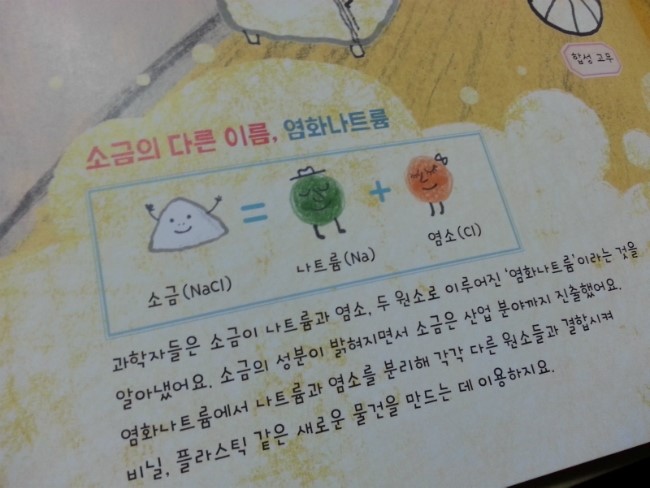 합성 고무
소금의 다른 이름, 염화나트륨
= +
소금(NaCl) 나트륨(Na) 염소(Cl)
과학자들은 소금이 나트륨과 염소, 두 원소로 이루어진 '염화나트륨'이라는 것을
알아냈어요. 소금의 성분이 밝혀지면서 소금은 산업 분야까지 진출했어요.
염화나트륨에서 나트륨과 염소를 분리해 각각 다른 원소들과 결합시켜
비닐, 플라스틱 같은 새로운 물건을 만드는 데 이용하지요.